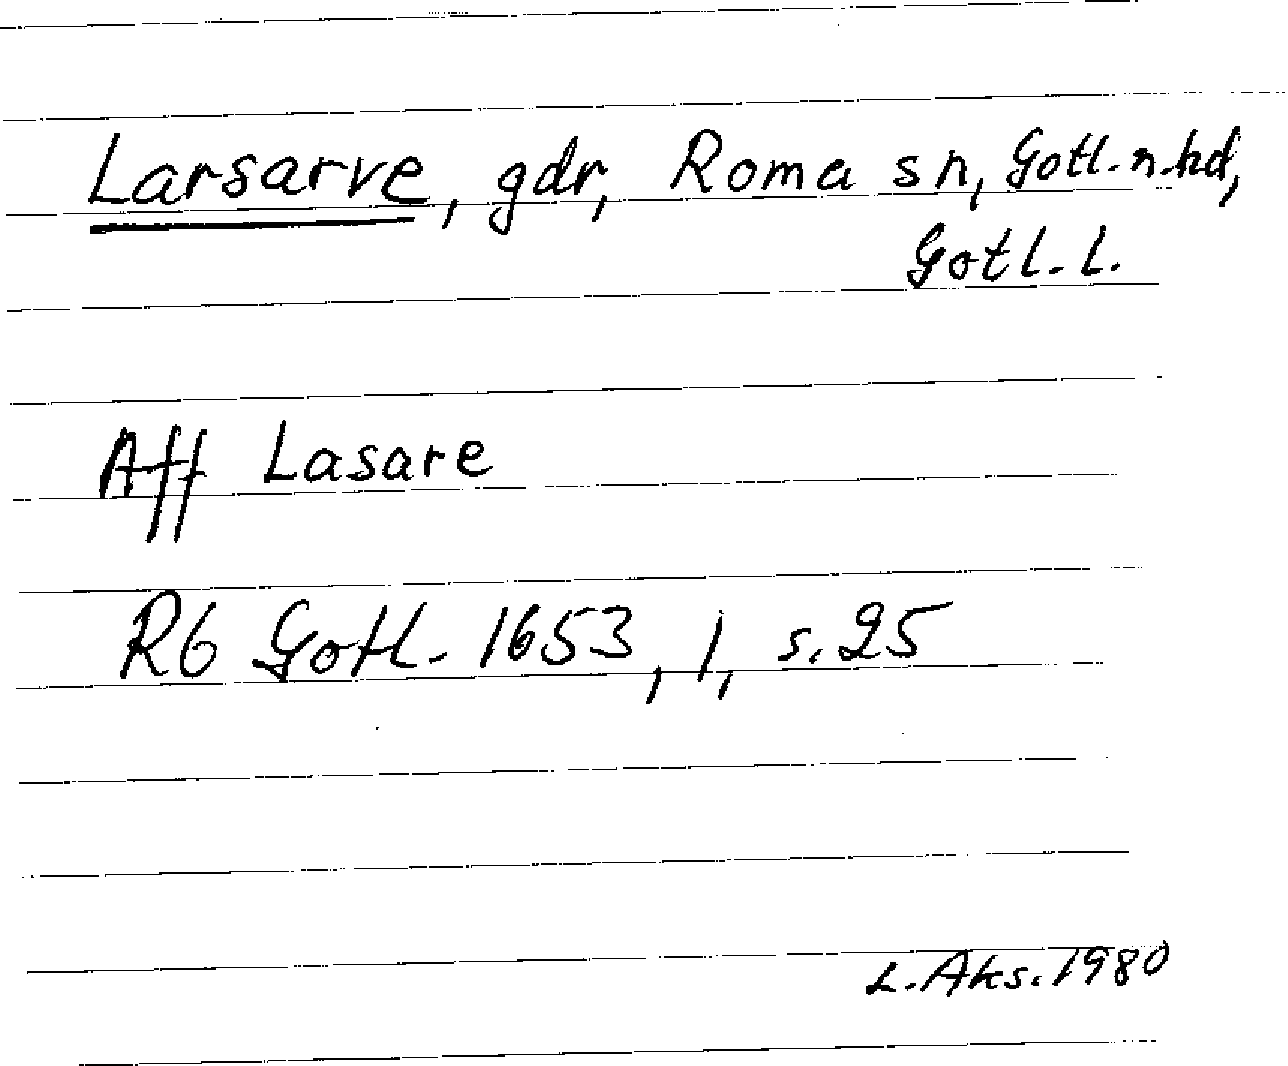 Larsarve, gdr, Roma sn, Gotl. n. hd,
Gotl. l.
Aff Lasare
Rb Gotl. 1653, 1, s. 25
L. Aks. 1980